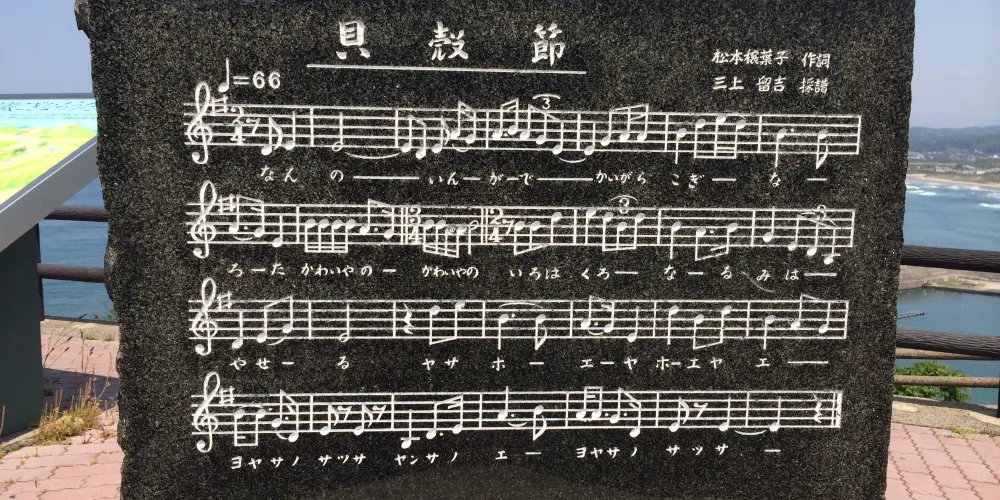 貝殻節
松本穣葉子 作詞
三上 留吉 採譜
♩=66
なん の ―― いん― が―で―― かいがら こぎ― な ―
ろーた かわいやの ー かわいやの いろは くろ― な―る みは―
やせ― る ヤサ ホ ― エーヤ ホーエヤ エ ―
ヨヤサノ サツサ ヤンサノ エ ― ヨヤサノ サツサ ―